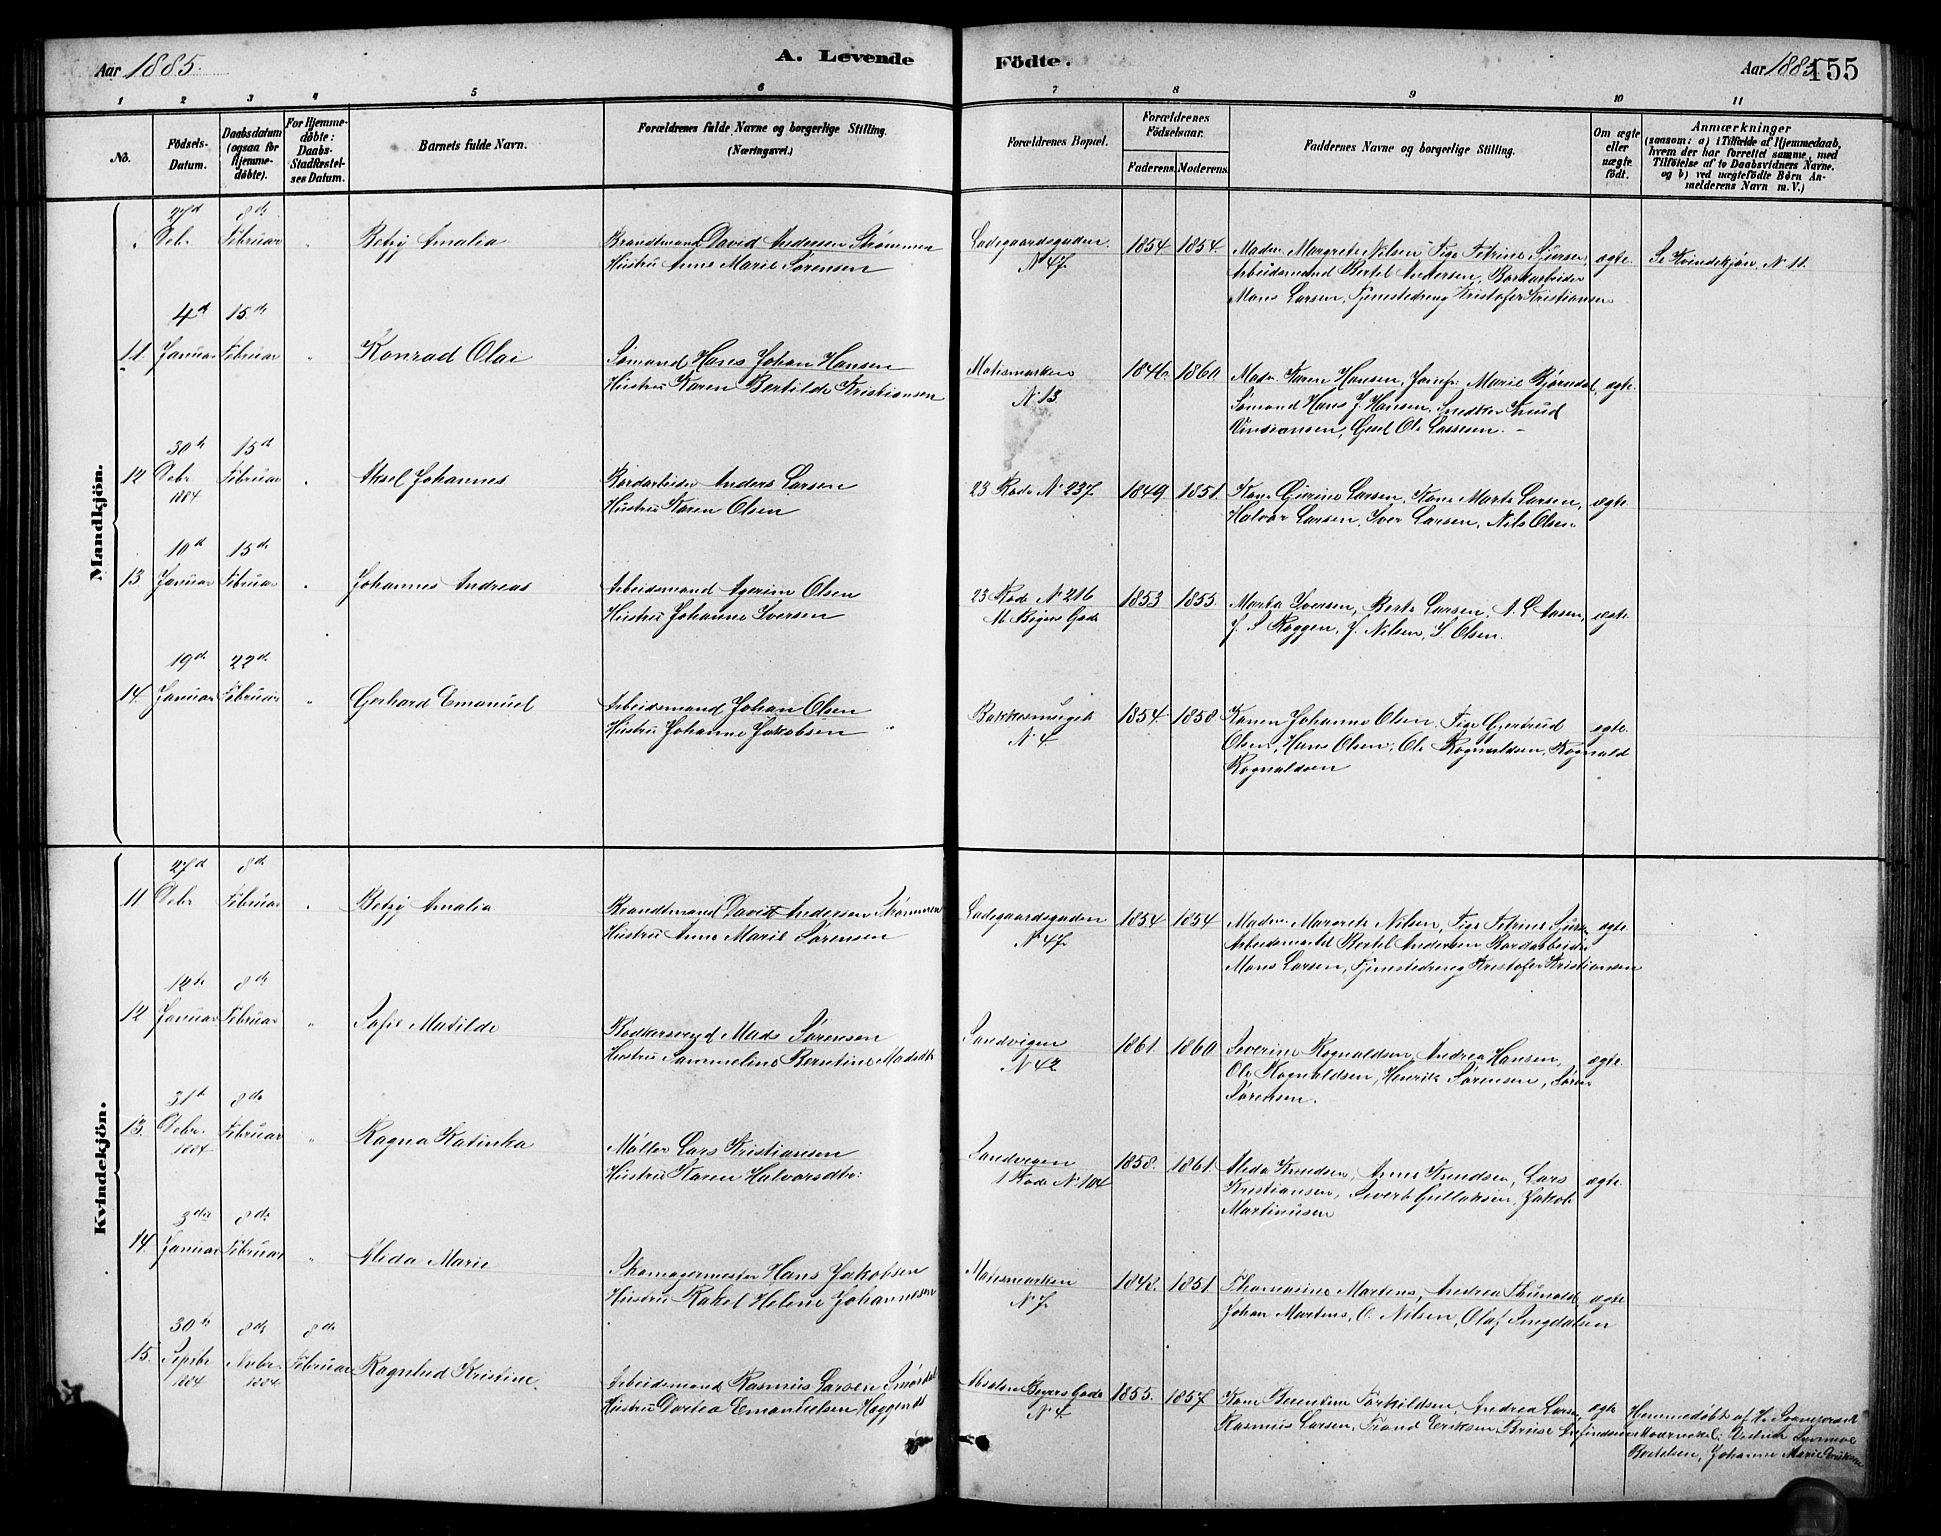 Aar 1885.
A. Levende
Födte.
Aar 1885
155
1 2 3 4 5 6 7 8 9 10 11
No.
Födsels-
Datum.
Daabsdatum
(ogsaa for
Hjemme-
døbte).
For Hjemme-
døbte:
Daabs-
Stadfæstel-
ses Datum.
Barnets fulde Navn.
Forældrenes fulde Navne og borgerlige Stilling.
(Næringsvei.)
Forældrenes Bopæl.
Forældrenes
Födselsaar.
Faderens. Moderens.
Faddernes Navne og borgerlige Stilling.
Om ægte
eller
uægte
født.
Anmærkninger
(saasom: a) i Tilfælde af Hjemmedaab,
hvem der har forrettet samme, med
Tilföielse af to Daabsvidners Navne,
og b) ved uægtefödte Börn An-
melderens Navn m. V.)
Mandkjön.
27d 8de
Debr Februar " Betzy Amalia
Brandtmand David Andersen Strømmen
Hustru Anne Marie Sørensen
Ladegaardsgaden
N 47
1854 1854.
Madm. Margrete Nilsen, Pige Petrine Sjursen,
Arbeidsmand Bertel Andersen, Bordarbeider
Mons Larsen, Tjenestedreng Kristofer Kristiansen
ægte
Se Kvindekjøn, N 11.
4d 15de
11. Januar Februar " Konrad Olai
Sømand Hans Johan Hansen
Hustru Karen Bertilde Kristiansen
Møhlenmarken
N 13
1846. 1860
Madm. Karen Hansen, Jomfr. Marie Bjørndal,
Sømand Hans J. Hansen, Snedker Knud
ægte
30te 15d
12 Debr Februar " Aksel Johannes
1884
Bordarbeider Anders Larsen
Hustru Karen Olsen
23 Rode N 237
1849 1851.
Kone Gjerine Larsen, Kone Marte Larsen,
Halvor Larsen, Iver Larsen, Nils Olsen
ægte
10d 15de
13 Januar Februar " Johannes Andreas
Arbeidsmand Agerim Olsen
Hustru Johanne Iversen
23 Rode N 216
1853 1855.
Marta Iversen, Berte Larsen, A. L. Aasen,
J. S. Roggen, J. Nilsen, S. Olsen.
ægte
19d 22de
14. Januar Februar " Gerhard Emanuel
Arbeidsmand Johan Olsen
Hustru Johanne Jakobsen "
Bakkesmuget
N 4
1854. 1858
Karen Johanne Olsen, Pige Gjertrud
Olsen, Hans Olsen, Ole Rognaldsen, Rognald
Rognaldsen
ægte
Kvindekjön.
27d 8de
11 Debr Februar " Betzy Amalia
Brandtmand David Andersen Strømmen
Hustru Anne Marie Sørensen
Ladegaardsgaden
N 47.
1854 1854
Madm. Margrete Nilsen, Pige Petrine Sjurs.
Arbeidsmand Bertel Andersen, Bordarbeider
Mons Larsen, Tjenestedreng Kristofer Kristiansen
ægte
12te 8de
12 Januar Februar " Sofie Matilde
Bødkersvend Mads Sørensen
Hustru Sammeline Berntine Madsdtr
Sandvigen
N 42
1861. 1860
Severine Rognaldsen, Andrea Hansen,
Ole Rognaldsen, Henrik Sørensen, Søren
Sørensen.
ægte
31te 8de
13. Debr. Februar " Ragna Katinka
1884
Møller Lars Kristiansen
Hustru Karen Halvorsdtr.
Sandvigen
1 Rode N 104
1858. 1861
Alida Knudsen, Anne Knudsen, Lars
Kristiansen, Sivert Gullaksen, Jakob
Martinusen
ægte
3die 8de
14. Januar Februar " Alida Marie
Skomagermester Hans Jakobsen
Hustru Rakel Helene Johannesen
Møhlenmarken
N 7.
1848. 1851
Thomasine Martens, Andrea Thunold,
Johan Martens, O. Nilsen, Olaf Singdalsen
ægte
30te 8de 8de
15. Septbr Novbr Februar Ragnhild Kristine
1884 1884
Arbeidsmand Rasmus Larsen Smørdal
Hustru Dortea Emanuelsen
Absalon Beyers Gade
N 4
1855. 1857
Kone Berentine Torkildsen, Andrea Larsen,
Rasmus Larsen, Trond Eriksen
ægte
Hjemmedøbt af
Bertelsen, Johanne Marie Eriksen